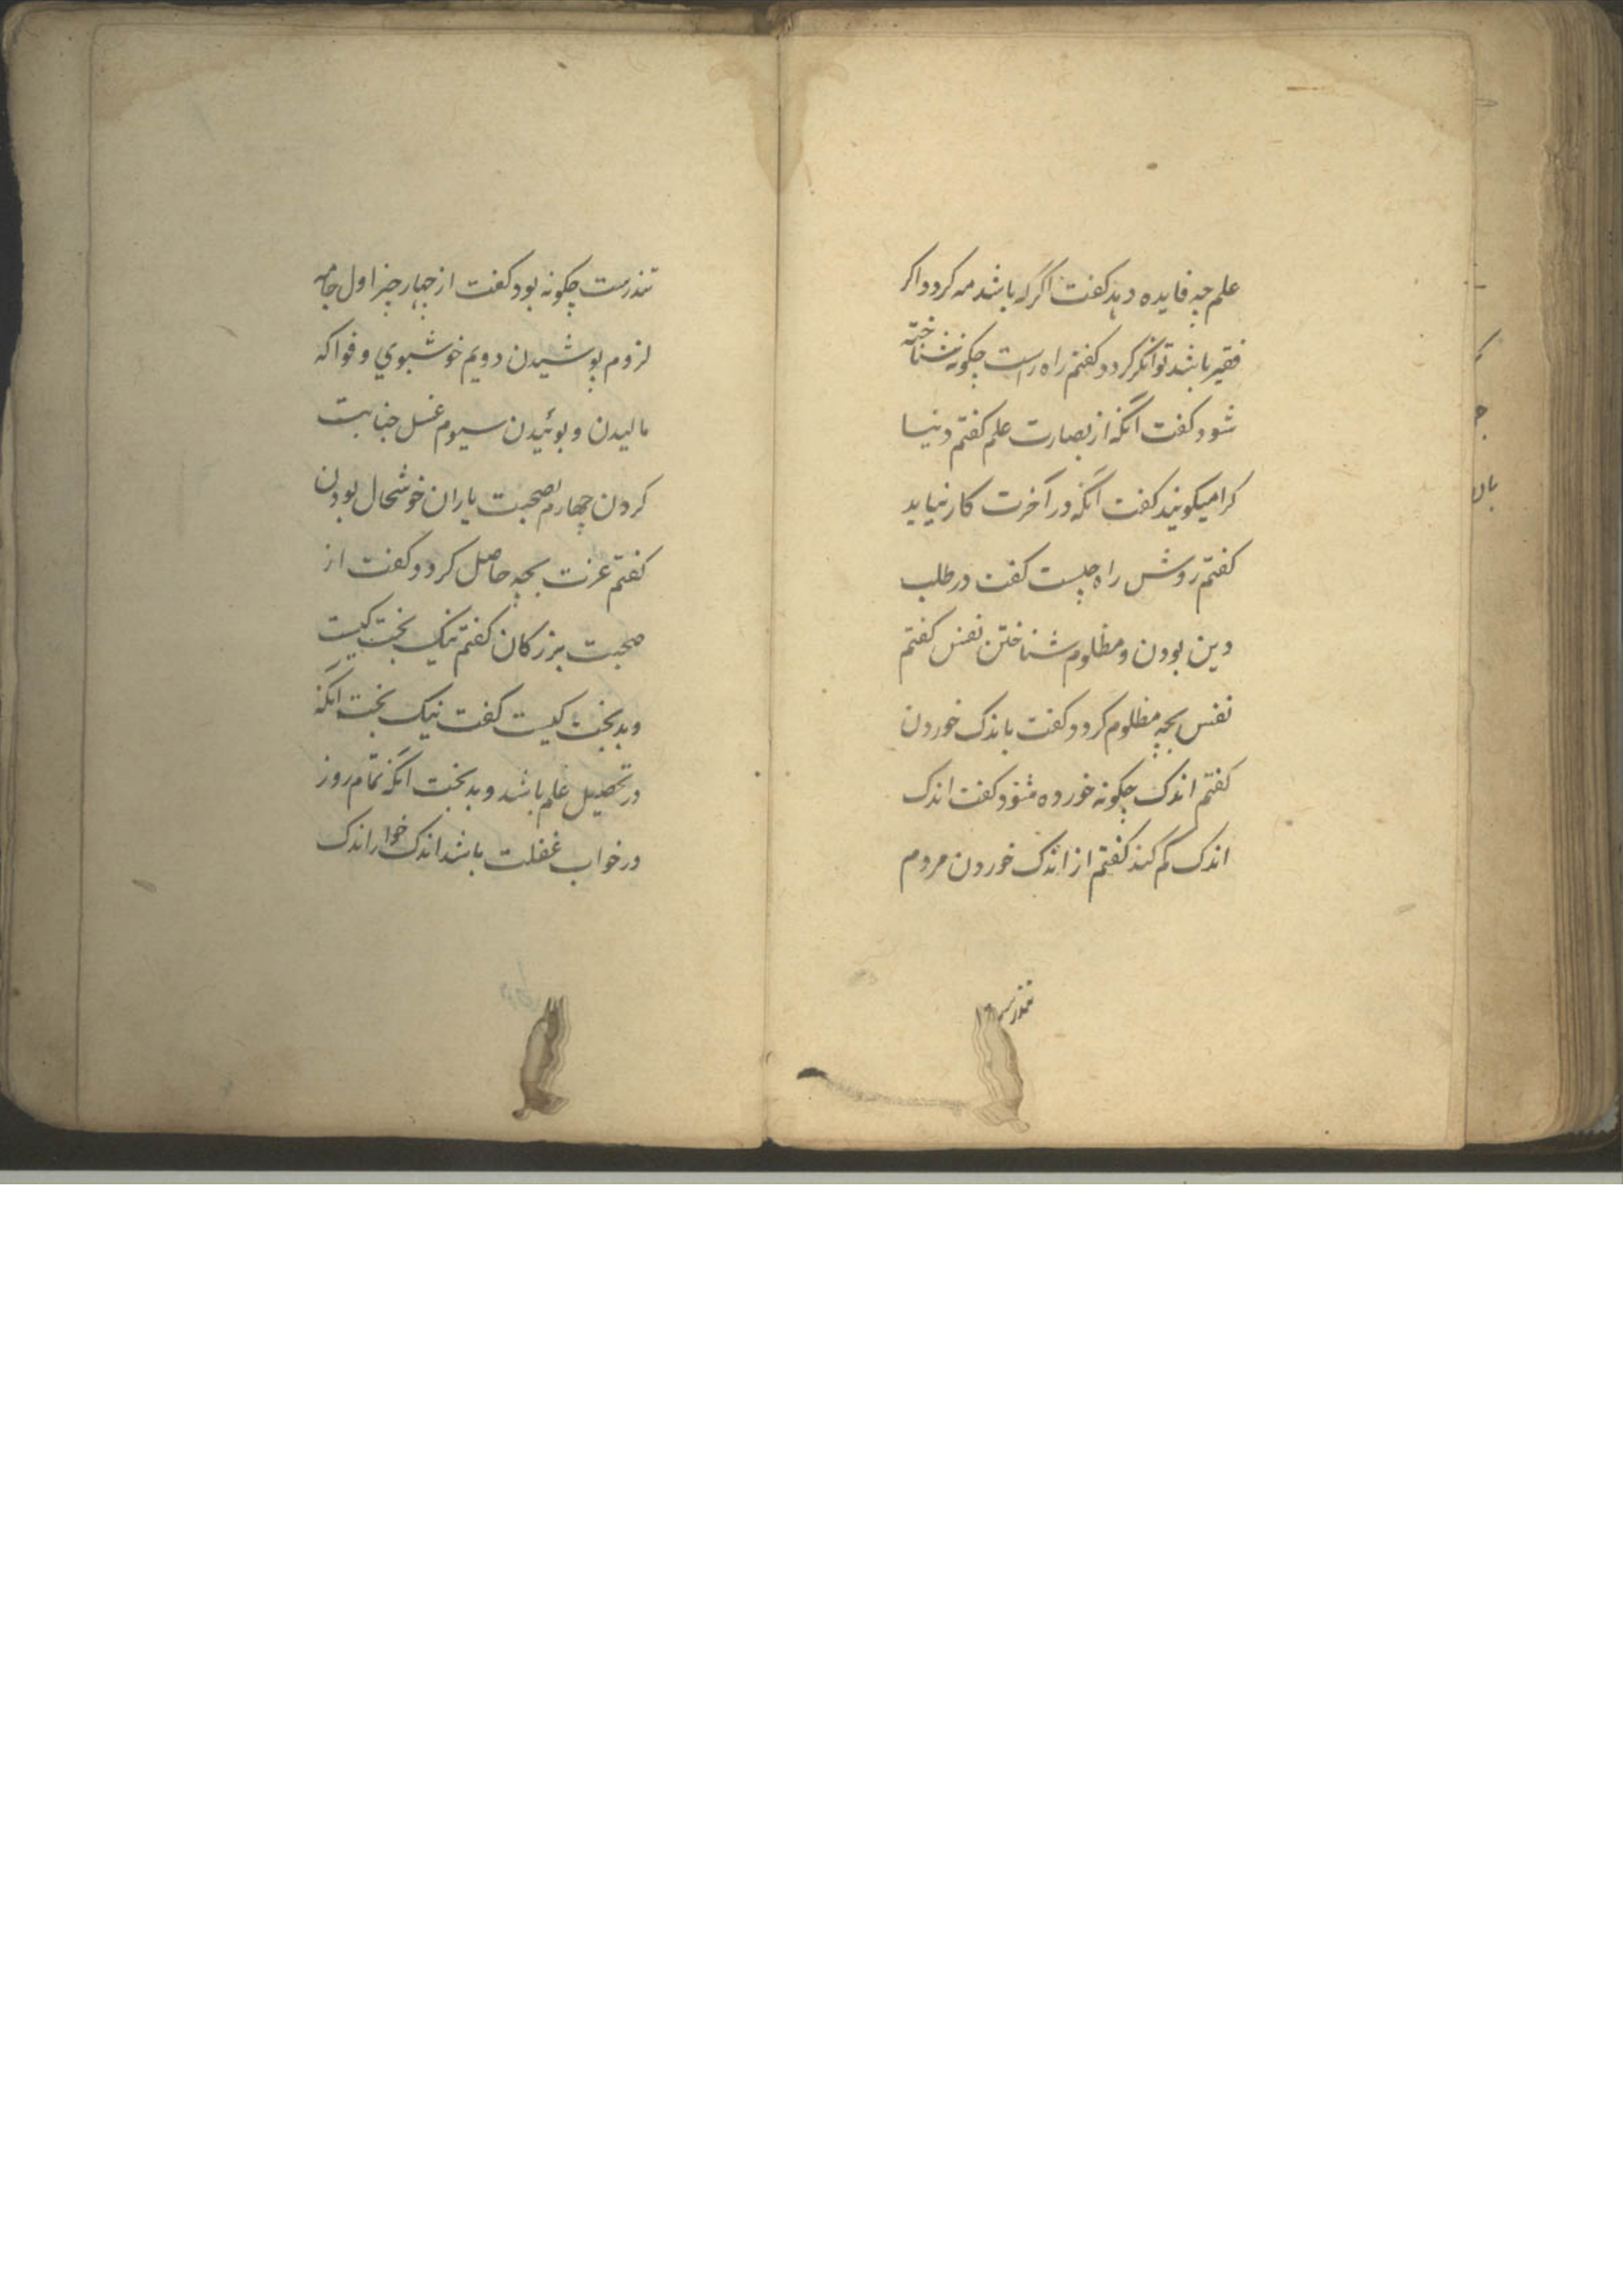 علم چه فایده دهد کفت اگر که باشد مه کردد اکر
فقیر باشد توانگر کردد کفتم راه راست چکونه شناخته
شود کفت آنکه از بصارت علم کفتم دنیا
کرا میکویند کفت آنکه در آخرت کار نیاید
کفتم روش راه چیست کفت در طلب
دین بودن و مظلوم شناختن نفس کفتم
نفس بچه مظلوم کردد کفت باندک خوردن
کفتم اندک چکونه خورده شود کفت اندک
اندک کم کند کفتم از اندک خوردن مردم
تندرست
تندرست چکونه بود کفت از چهار چیز اول جامه
لزوم پوشیدن دویم خوشبوي و فواکه
مالیدن و بوئیدن سیوم غسل جنابت
کردن چهارم بصحبت یاران خوشحال بودن
کفتم عزت بچه حاصل کردد کفت از
صحبت بزرکان کفتم نیک بخت کیست
و بدبخت کیست کفت نیک بخت انکه
در تحصیل علم باشد و بدبخت انکه تمام روز
در خواب غفلت باشد اندک خوار اندک